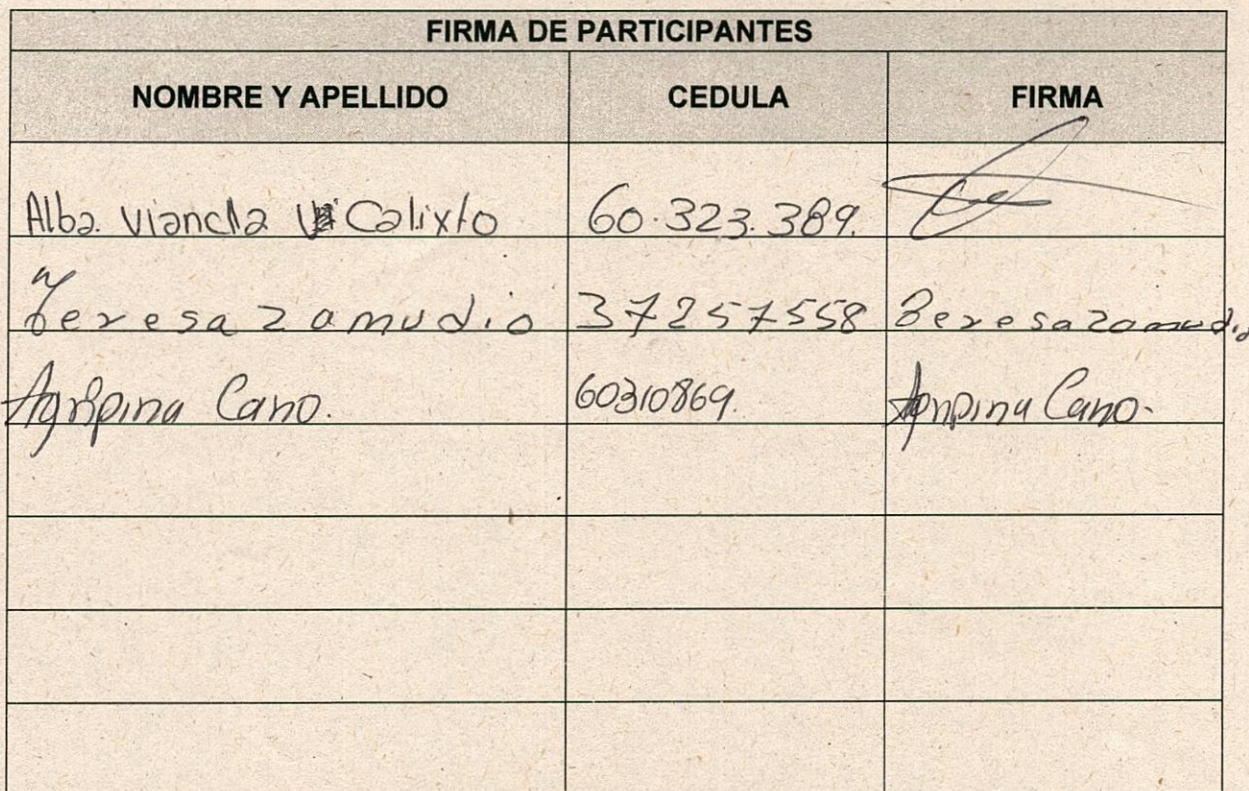 FIRMA DE PARTICIPANTES
NOMBRE Y APELLIDO CEDULA FIRMA
Alba Viancha Calixto 60.323.389.
Teresa Zamudio 37257558 Teresa Zamudio
Agripina Cano. 60310869. Agripina Cano.